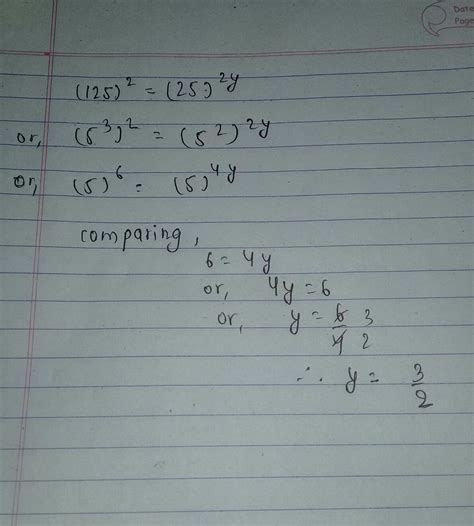 Date
Page
(125)² = (25)^2y
or, (5³)² = (5²)^2y
or, (5)⁶ = (5)^4y
comparing,
6 = 4y
or, 4y = 6
or, y = 6/4 3/2
∴ y = 3/2